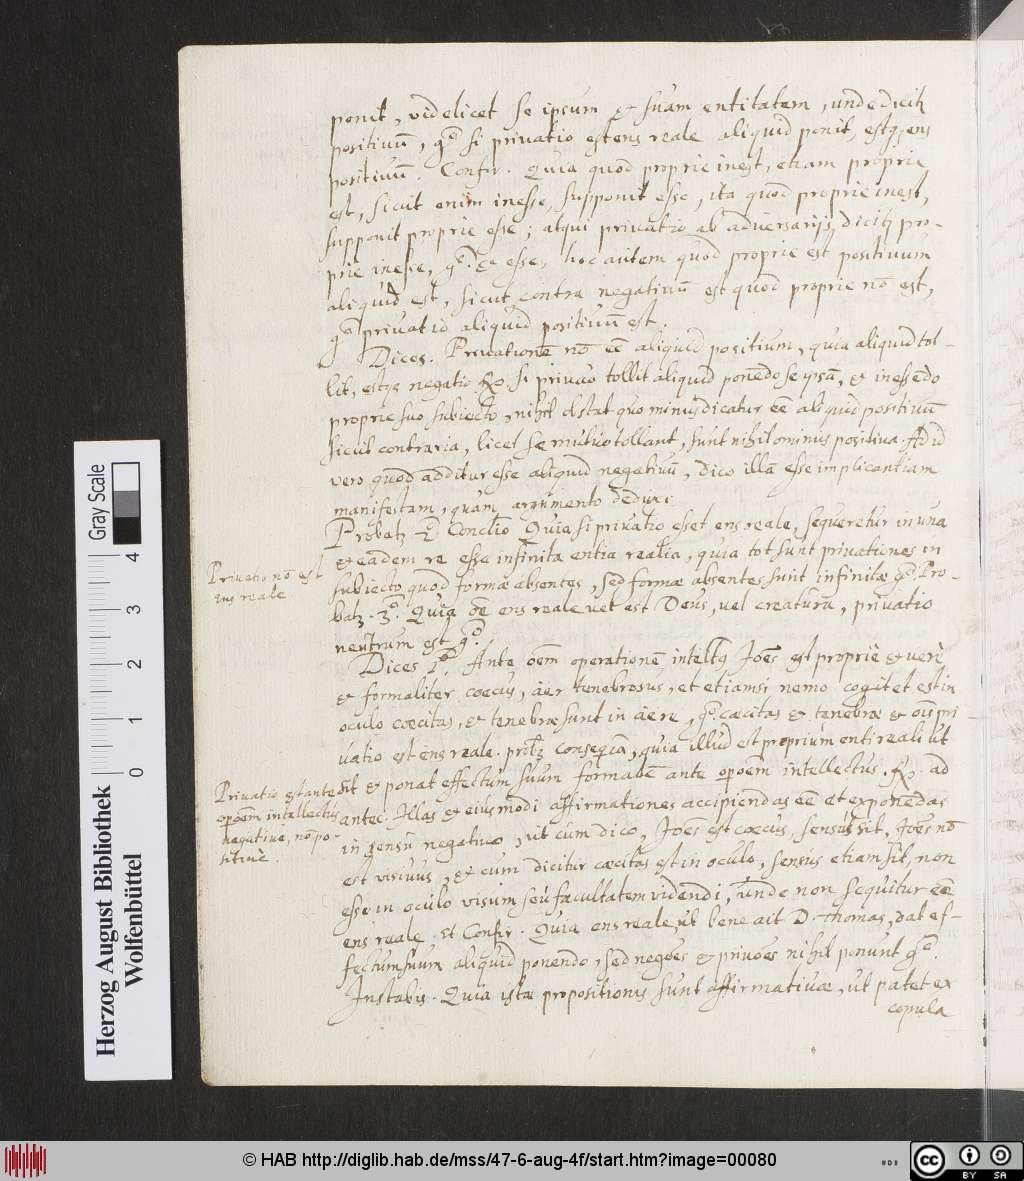 ponit, videlicet se ipsum & suam entitatem, unde dicitʒ
positivū, gº si privatio est ens reale aliquid ponit, estqʒ ens
positivū. Confir. Quia quod proprie inest, etiam proprie
est, sicut enim inesse, supponit esse, ita quod proprie inest,
supponit proprie esse; atqui privatio ab adversarijs dicitʒ pro-
prie inesse, gº & esse, hoc autem quod proprie est positivum
aliquid est, sicut contra negativū est quod proprie nō est,
gº privatio aliquid positivū est.
Dices. Privationē nō eē aliquid positium, quia aliquid tol-
lit, estqʒ negatio si privatio tollit aliquid ponēdo se ipsā, & inessēdo
proprie suo subiecto, nihil obstat quo minus dicatur eē aliquid positivū
sicut contraria, licet se mutuo tollant, sunt nihilominus positiva. Ad id
vero quod additur esse aliquid negativū, dico illā esse implicantiam
manifestam, quam argumento deduxi
Probatʒ Conclio Quia si privatio esset ens reale, sequeretur in una
& eadem re esse infinita entia realia, quia tot sunt privationes in
subiecto quod formæ absentes, sed formæ absentes sunt infinitæ gº. Pro-
batʒ. 3º. Quia oē ens reale vel est Deus, vel creatura, privatio
neutrum est gº.
Privatio nō est
ens reale
Dices 1º Ante oēm operationē intellʒ Joēs est proprie & vere
& formaliter coecus, aer tenebrosus, et etiamsi nemo cogitet est in
oculo cœcitas, & tenebræ sunt in aëre, gº. cæcitas & tenebræ & oīs pri
vatio est ens reale. probʒ conseqūa, quia illud est proprium enti reali ut
sit & ponat effectum suum formalē ante opoēm intellectus. ad
antec. Illas & eiusmodi affirmationes accipiendas eē et exponēdas
in sensū negativo, ut cum dico, Joēs est cœcus, sensus sit, Joēs nō
est visivus, & cum dicitur cæcitas est in oculo, sensus etiam sit, non
esse in oculo visum seu facultatem videndi, unde non sequitur eē
ens reale. et Confir. Quia ens reale ut bene ait D. Thomas, dat ef-
fectum suum aliquid ponendo, sed negoēs & privoēs nihil ponunt gº.
Instabis. Quia istæ propositionis sunt affirmativæ, ut patet ex
copula
Privatio est ante
opoēm intellectus
negative, nō po-
sitive.
Herzog August Bibliothek
Wolfenbüttel
Gray Scale
0 1 2 3 4
© HAB http://diglib.hab.de/mss/47-6-aug-4f/start.htm?image=00080
cc BY SA